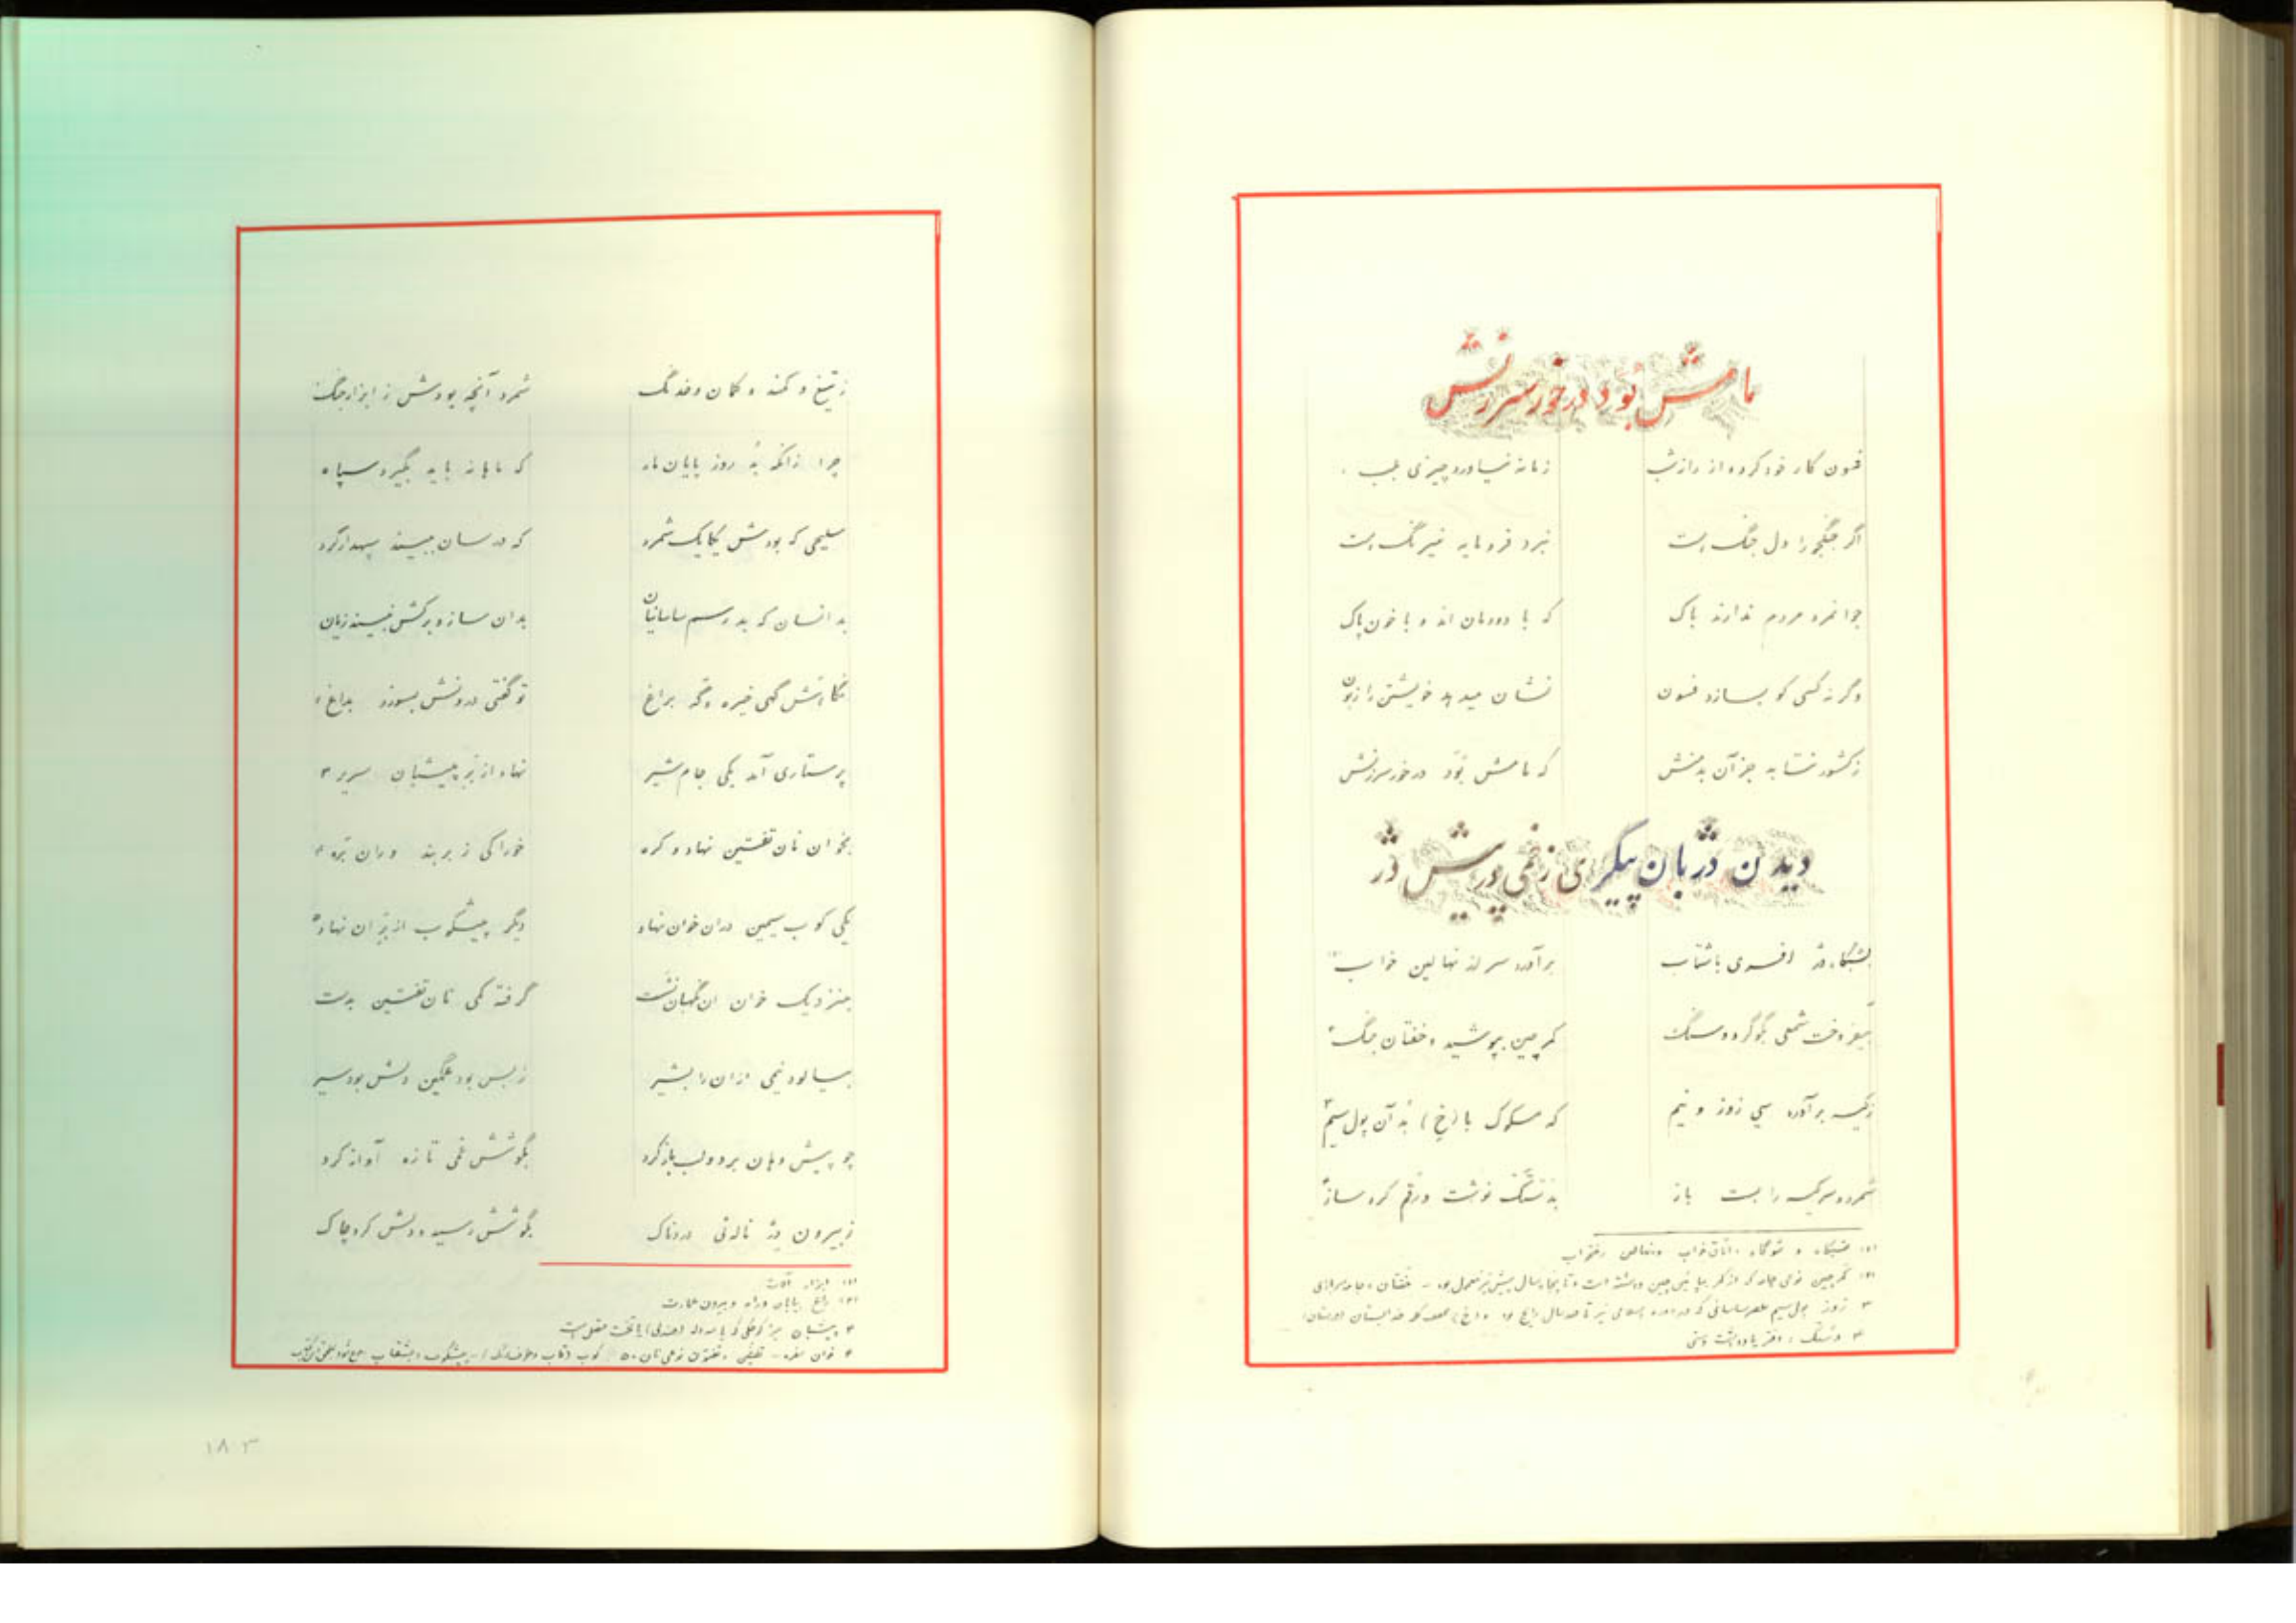 نامش بود درخور سرزنش
فسون کار خود کرده از راز شب زمانه نیاورد چیزی بلب
اگر جنگجو را دل جنگ هست نبرد فرومایه نیرنگ هست
جوانمرد مردم ندارند باک که با دودمان اند و با خون پاک
وگرنه کسی کو بسازد فسون نشان میدهد خویشتن را زبون
ز کشور نتابه جز آن بدمنش که نامش بود درخور سرزنش
دیدن دژبان پیکری زخمی در پیش دژ
بشبگاه دژ افسری باشتاب برآورد سر از نهالین خواب
بیفروخت شمعی بگوگرد و سنگ کمرچین بپوشید و خفتان جنگ
ز کیسه برآورد سی زوز و نیم که مسکوک با (خ) بُد آن پول سیم
شمرد و سر کیسه را بست باز نوشت و رقم کرد ساز
(۱) شبگاه و شوگاه اتاق خواب و نهالین رختخواب
(۲) کمرچین نوعی جامه که از کمر بپائین چین داشته است و تا پنجاه سال پیش نیز معمول بود - خفتان جامه سربازی
۳ زوز پول سیم عصر ساسانی که در دوره اسلامی نیز تا صد سال رایج بود
۴ دفتر یادداشت دستی
ز تیغ و کمند و کمان و خدنگ شمرد آنچه بودش ز ابزار جنگ
چرا زانکه بُد روز پایان ماه که ماهانه باید بگیرد سپاه
سلیحی که بودش یکایک شمرد که در سان ببیند سپهدار گرد
بدانسان که بد رسم ساسانیان بدان ساز و برگش نبیند زیان
نگاهش گهی خیره و گه براغ تو گفتی درونش بسوزد بداغ
پرستاری آمد یکی جام شیر نهاد از بر پیشبان سریر
بخوان نان تفتین نهاد و کره خوراکی ز بربند و ران بره
یکی کوب سیمین در آن خوان نهاد دیگر پیشکوب از بر آن نهاد
بنزدیک خوان آن نگهبان نشست گرفته کمی نان تفتین بدست
بیالود نیمی از آن را بشیر ز بس بود غمگین دلش بود سیر
چو پیش دهان برد و لب باز کرد بگوشش غمی تازه آواز کرد
ز بیرون دژ ناله‌ئی دردناک بگوشش رسید و دلش کرد چاک
(۱) ابزار آلات
(۲) راغ بیابان و بیرون عمارت
۳ پیشبان میز کوچکی که با صندلی یا تخت متصل است
۴ خوان سفره - تفتین و تفتون نوعی نان
۱۸۳